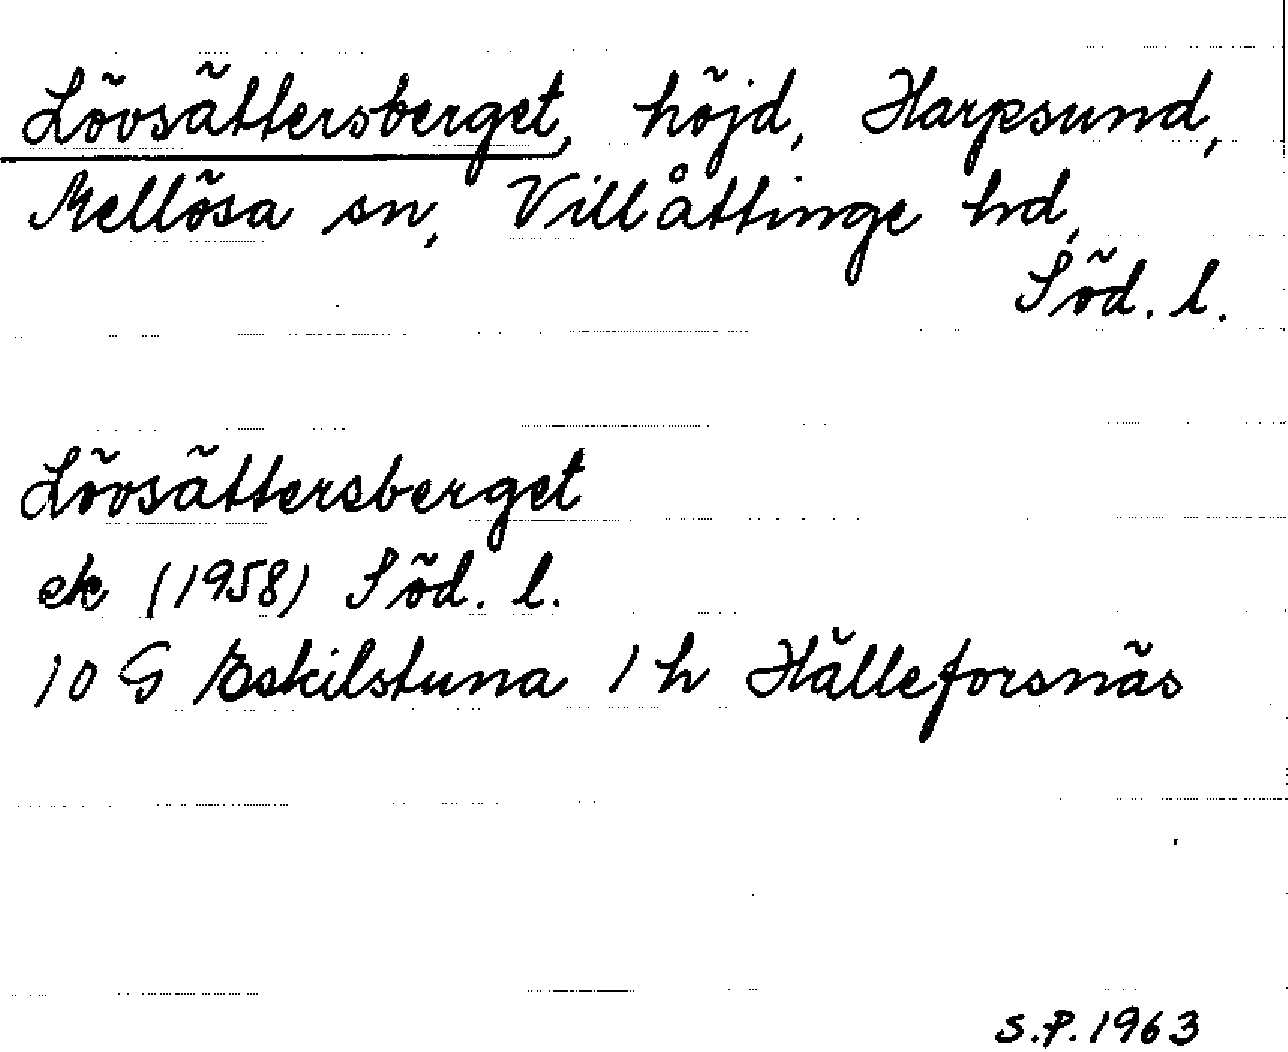 Lövsättersberget, höjd, Harpsund,
Mellösa sn, Villåttinge hd,
Söd. l.
Lövsättersberget
ek (1958) Söd. l.
10 G Eskilstuna 1 h Hälleforsnäs
S.P. 1963